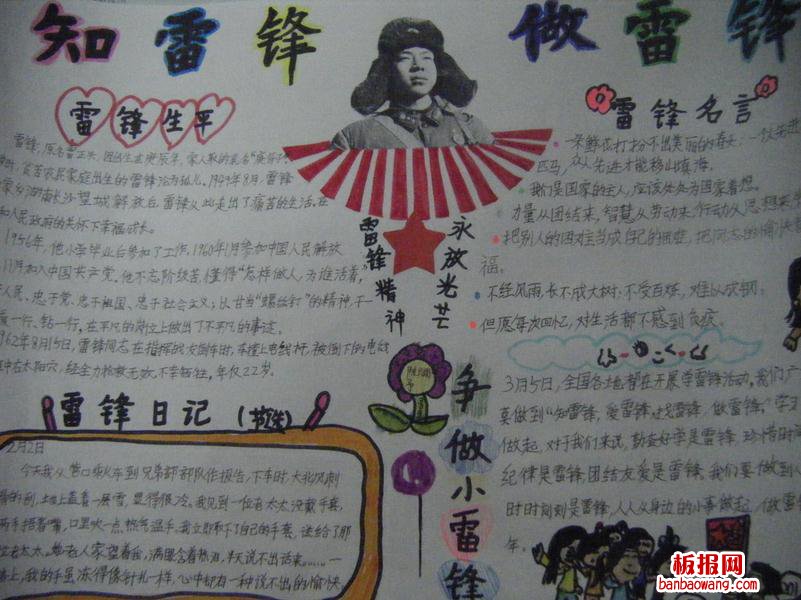 知雷锋 做雷锋
雷锋生平
雷锋,原名雷正兴,
贫苦农民家庭出生的雷锋沦为孤儿。1949年8月,雷锋
家乡湖南长沙望城解放后,雷锋从此走出了痛苦的生活。在
和人民政府的关怀下幸福成长。
1956年,他小学毕业后参加了工作,1960年1月参加中国人民解放
11月加入中国共产党。他不忘阶级苦,懂得“怎样做人,为谁活着”,
人民、忠于党、忠于祖国、忠于社会主义;以甘当“螺丝钉”的精神,干一
爱一行、钻一行,在平凡的岗位上做出了不平凡的事迹。
1962年8月15日,雷锋同志在指挥战友倒车时,车撞上电线杆,被倒下的电线
击中右太阳穴,经全力抢救无效,不幸牺牲,年仅22岁。
雷锋精神
永放光芒
雷锋名言
一朵鲜花打扮不出美丽的春天,一个人先进
匹马,众人先进才能移山填海。
我们是国家的主人,应该处处为国家着想。
力量从团结来,智慧从劳动来,行动从思想来
把别人的困难当成自己的困难,把同志的愉快
福。
不经风雨,长不成大树;不受百炼,难以成钢。
但愿每次回忆,对生活都不感到负疚。
3月5日,全国各地都在开展学雷锋活动,我们
要做到“知雷锋,爱雷锋,
做雷锋,”学习
做起,对于我们来说,勤奋好学是雷锋,珍惜时
纪律是雷锋,团结友爱是雷锋,我们要做到
时时刻刻是雷锋,人人从身边的小事做起,做雷
年。
雷锋日记(节选)
2月2日
今天我从营口乘火车到兄弟部队作报告,下车时,大北风刺
骨的刮,地上盖着一层雪,显得很冷。我见到一位老太太没戴手套,
两手捂着嘴,口里吹一点热气温手。我立即取下了自己的手套,送给了那
位老太太。她老人家望着我,满眼含着热泪,半天说不出话来。……一
路上,我的手虽冻得像针扎一样,心中却有一种说不出的愉快
争做小雷锋
板报网
banbaowang.com